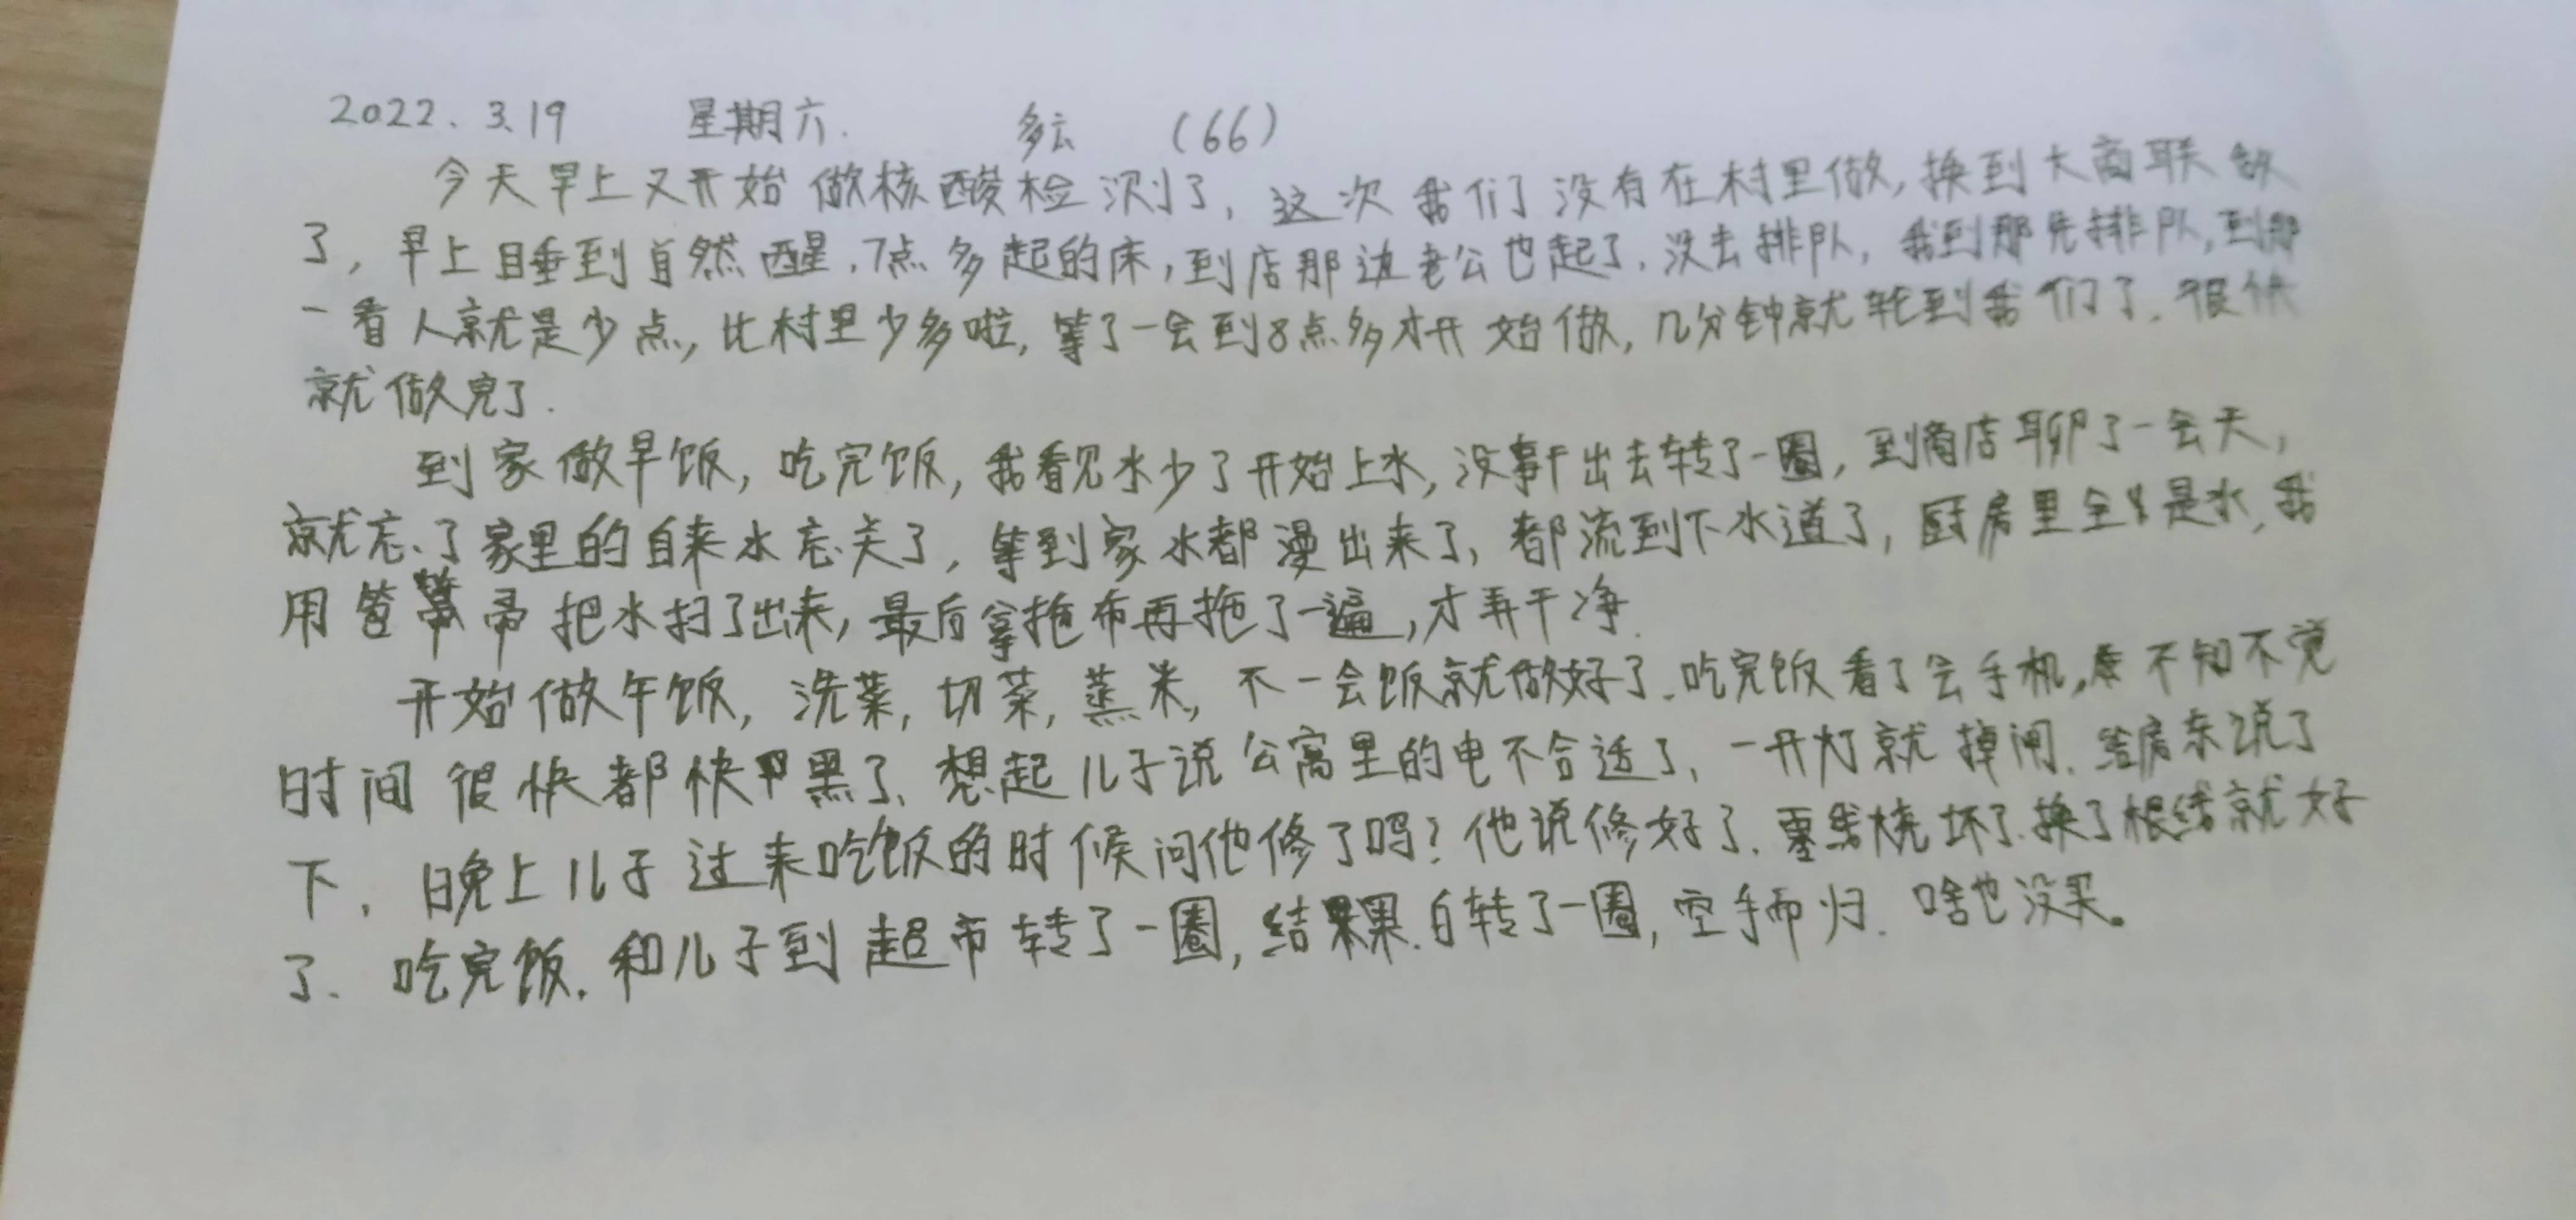 2022.3.19 星期六. 多云 (66)
今天早上又开始做核酸检测了,这次我们了没有在村里做,换到大商联做
了,早上睡到自然醒,7点多起的床,到店那边老公也起了,没去排队,我到那先排队,到那
一看人就是少点,比村里少多啦,等了一会到8点多才开始做,几分钟就轮到我们了.很快
就做完了.
到家做早饭,吃完饭,我看见水少了开始上水,没事干出去转了一圈,到商店聊了一会天,
就忘了家里的自来水忘关了,等到家水都漫出来了,都流到下水道了,厨房里全是水,我
用笤帚把水扫了出来,最后拿拖布再拖了一遍,才弄干净.
开始做午饭,洗菜,切菜,蒸米,不一会饭就做好了.吃完饭看了会手机,不知不觉
时间很快都快黑了,想起儿子说公寓里的电不合适了,一开灯就掉闸.给房东说了
下,晚上儿子过来吃饭的时候问他修了吗?他说修好了.零线烧坏了.换了根线就好
了.吃完饭.和儿子到超市转了一圈,结果.白转了一圈,空手而归.啥也没买。